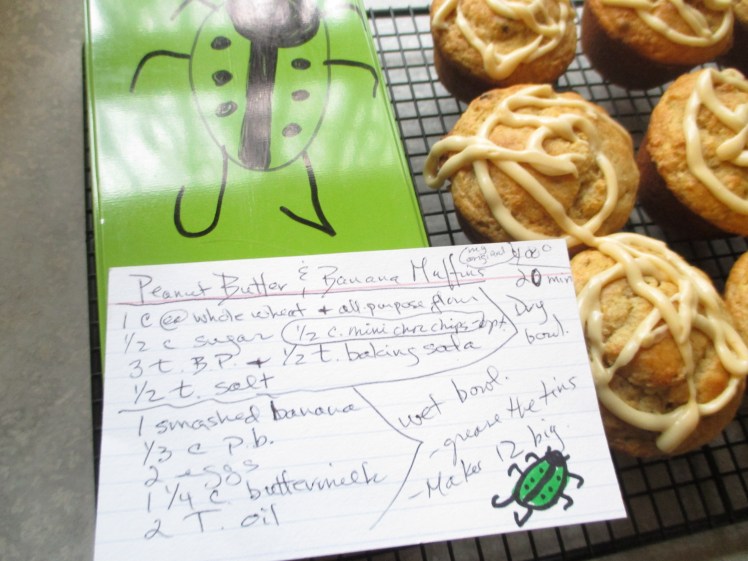 Peanut Butter & Banana Muffins (my original) 400°
20 min
1 c @ whole wheat + all-purpose flour
1/2 c sugar 1/2 c. mini choc chips-opt.
3 t. B.P. + 1/2 t. baking soda
1/2 t. salt
Dry bowl.
1 smashed banana
1/3 c p.b.
2 eggs
1 1/4 c. buttermilk
2 T. oil
wet bowl.
-grease the tins
-Makes 12 big.